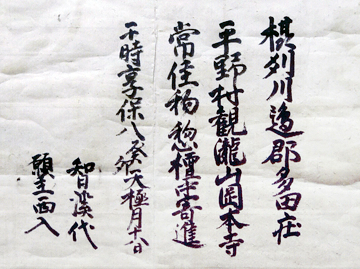 摂州川邉郡多田荘
平野村観瀧山岡本寺
常住物惣檀中寄進
于時享保八癸卯天極月十六日
智溪代
願主西入